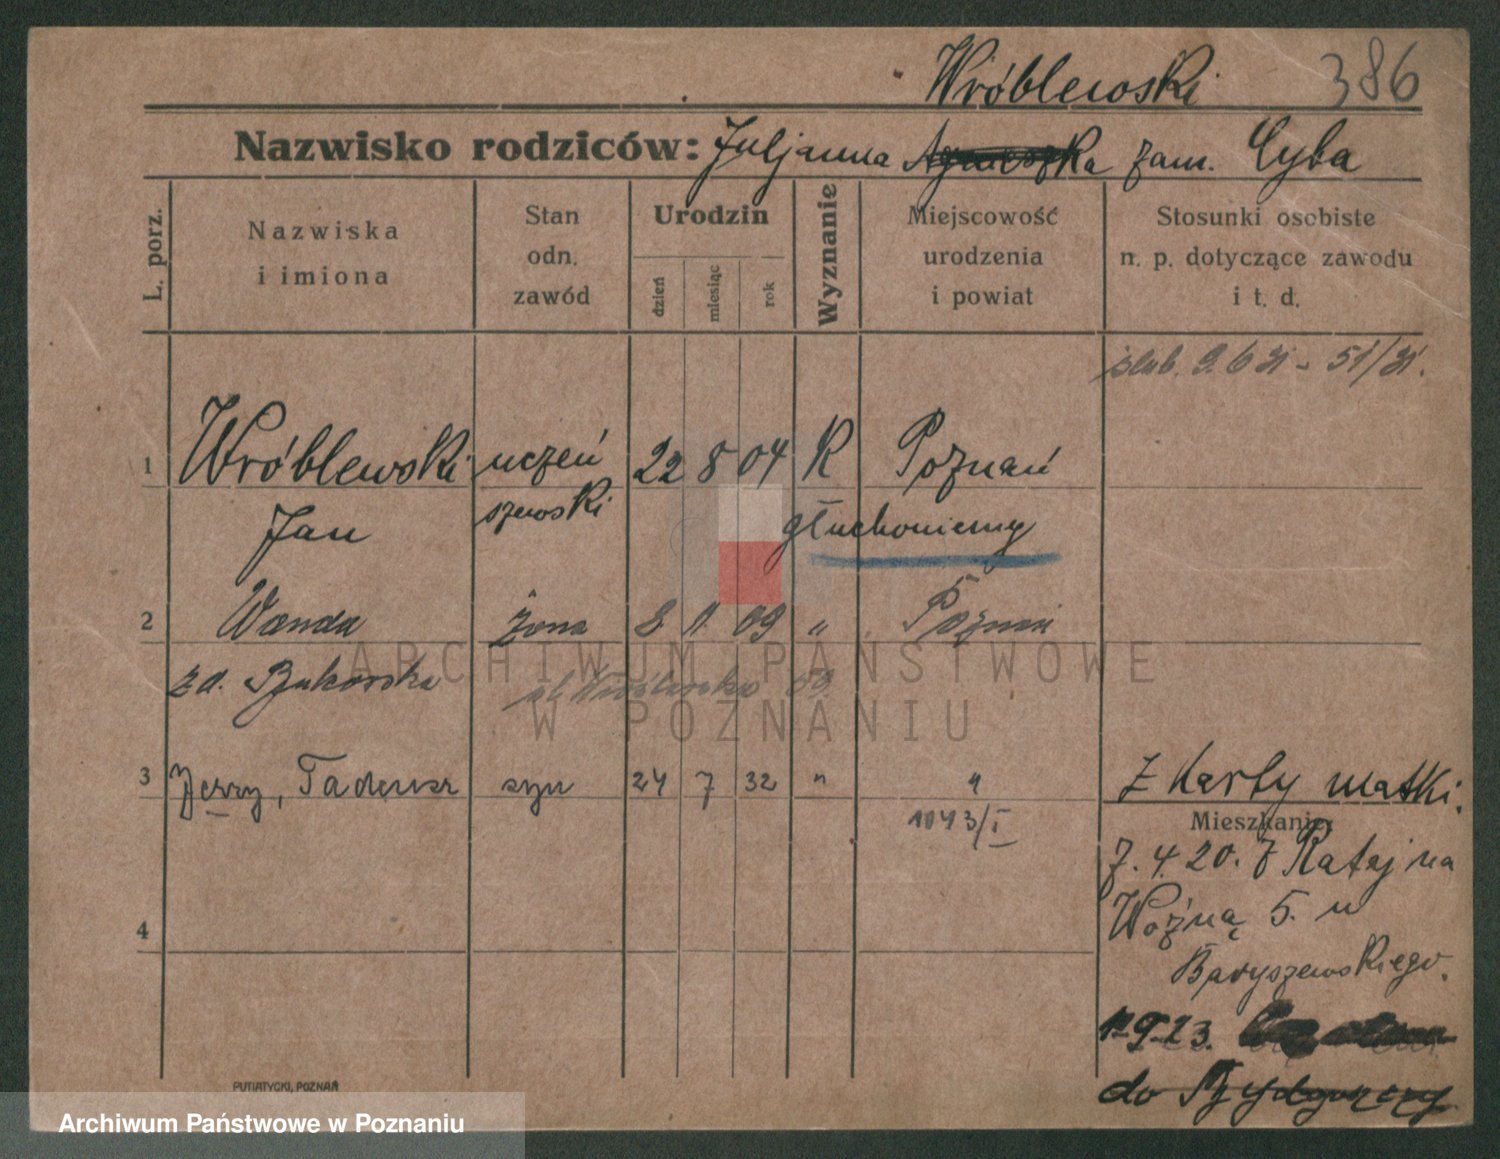 Wróblewski 386
Nazwisko rodziców: Juljanna Agnieszka zam. Cyba
L. porz.
Nazwiska
i imiona
Stan
odn.
zawód
Urodzin
dzień
miesiąc
rok
Wyznanie
Miejscowość
urodzenia
i powiat
Stosunki osobiste
n. p. dotyczące zawodu
i t. d.
ślub. 9.6 31 - 51/31.
1 Wróblewski uczeń 22 8 04 R Poznań
Jan szewski głuchoniemy
2 Wanda żona 8. 11. 09 „ Poznań
zd.
ARCHIWUM PAŃSTWOWE
W POZNANIU
3 Jerzy, Tadeusz syn 24 7 32 „ „ Z Karty matki.
1043/I
Mieszkanie:
7. 4. 20. z Rataj na
Woźną 5. u
Baryszewskiego.
4
9 23.
do Bydgoszczy
PUTIATYCKI, POZNAŃ
Archiwum Państwowe w Poznaniu